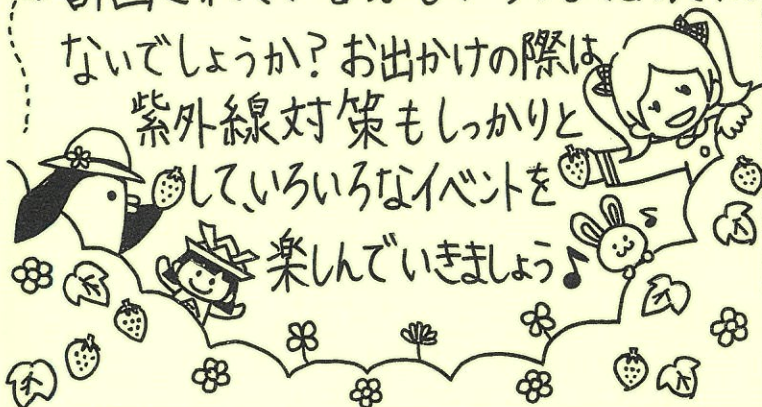 ないでしょうか？お出かけの際は
紫外線対策もしっかりと
して、いろいろなイベントを
楽しんでいきましょう♪